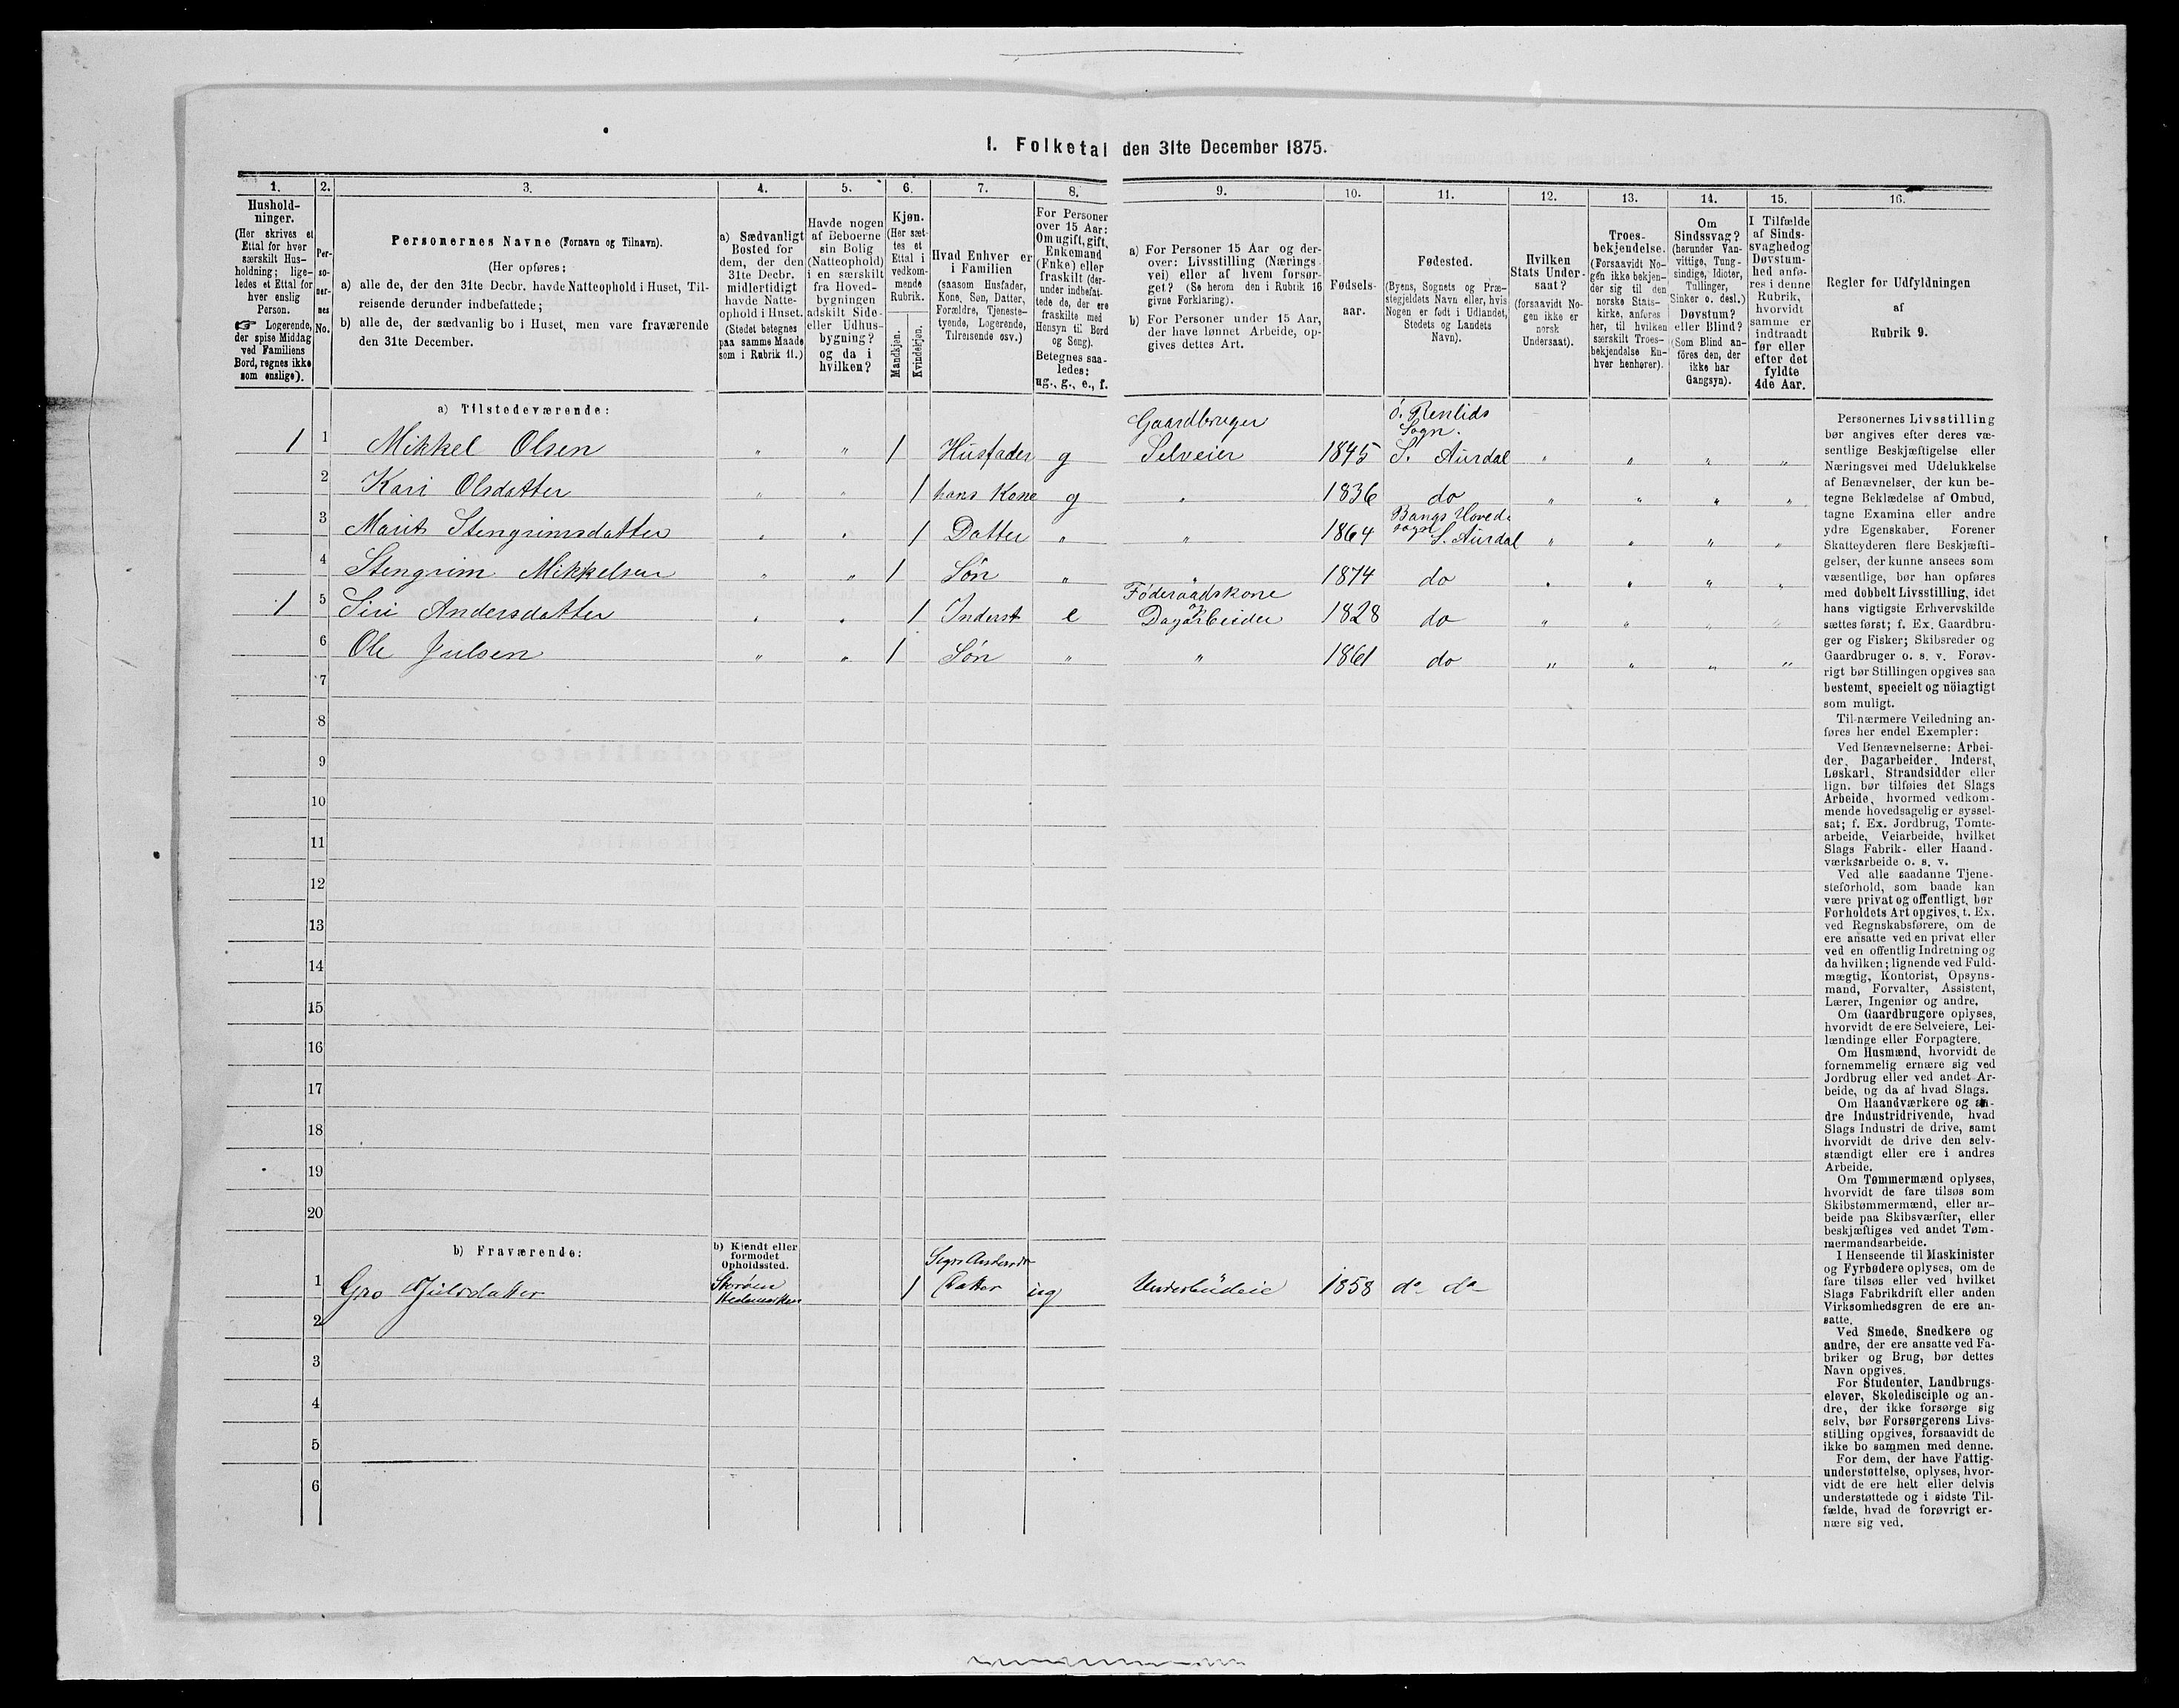 I. Folketal den 31te December 1875.
1.
2.
3.
4.
5.
6.
7.
8.
9.
10.
11.
12.
13.
14.
15.
16.
Hushold-
ninger.
(Her skrives et
Ettal for hver
særskilt Hus-
holdning; lige-
ledes et Ettal for
hver enslig
Person.
☞ Logerende,
der spise Middag
ved Familiens
Bord, regnes ikke
som enslige).
Per-
so-
ner-
nes
No.
Personernes Navne (Fornavn og Tilnavn).
(Her opføres:
a) alle de, der den 31te Decbr. havde Natteophold i Huset, Til-
reisende derunder indbefattede;
b) alle de, der sædvanlig bo i Huset, men vare fraværende
den 31te December.
a) Sædvanligt
Bosted for
dem, der den
31te Decbr.
midlertidigt
havde Natte-
ophold i Huset.
(Stedet betegnes
paa samme Maade
som i Rubrik 11.)
Havde nogen
af Beboerne
sin Bolig
(Natteophold)
i en særskilt
fra Hoved-
bygningen
adskilt Side-
eller Udhus-
bygning?
og da i
hvilken?
Kjøn.
(Her sæt-
tes et
Ettal i
vedkom-
mende
Rubrik.
Mandkjøn.
Kvindekjøn.
Hvad Enhver er
i Familien
(saasom Husfader,
Kone, Søn, Datter,
Forældre, Tjeneste-
tyende, Logerende,
Tilreisende osv.)
For Personer
over 15 Aar:
Om ugift, gift,
Enkemand
(Enke) eller
fraskilt (der-
under indbefat-
tede de, der ere
fraskilte med
Hensyn til Bord
og Seng).
Betegnes saa-
ledes:
ug., g., e., f.
a) For Personer 15 Aar og der-
over: Livsstilling (Nærings-
vei) eller af hvem forsør-
get? (Se herom den i Rubrik 16
givne Forklaring).
b) For Personer under 15 Aar,
der have lønnet Arbeide, op-
gives dettes Art.
Fødsels-
aar.
Fødested.
(Byens, Sognets og Præ-
stegjeldets Navn eller, hvis
Nogen er født i Udlandet,
Stedets og Landets
Navn).
Hvilken
Stats Under-
saat?
(forsaavidt No-
gen ikke er
norsk
Undersaat).
Troes-
bekjendelse.
(Forsaavidt No-
gen ikke bekjen-
der sig til den
norske Stats-
kirke, anføres
her, til hvilken
særskilt Troes-
bekjendelse En-
hver henhører).
Om
Sindssvag?
(herunder Van-
vittige, Tung-
sindige, Idioter,
Tullinger,
Sinker o. desl.)
Døvstum?
eller Blind?
(Som Blind an-
føres den, der
ikke har
Gangsyn).
I Tilfælde
af Sinds-
svaghed og
Døvstum-
hed anfø-
res i denne
Rubrik,
hvorvidt
samme er
indtraadt
før eller
efter det
fyldte
4de Aar.
Regler for Udfyldningen
af
Rubrik 9.
a) Tilstedeværende:
Gaardbruger
Sogn.
1 1 Mikkel Olsen " " 1 Husfader g Selveier 1845 S. Aurdal " " " "
2 Kari Olsdatter " " 1 hans Kone g " 1836 do " " " "
Bangs Hoved-
sogn
3 Marit Stengrimsdatter " " 1 Datter " " 1864 S. Aurdal " " " "
4 Stengrim Mikkelsen " " 1 Søn " " 1874 do " " " "
Føderaadskone
1 5 Siri Andersdatter " " 1 Inderst e Dagarbeider 1828 do " " " "
6 Ole Julsen " " 1 Søn " " 1861 do " " " "
7
8
9
10
11
12
13
14
15
16
17
18
19
20
b) Fraværende:
b) Kjendt eller
formodet
Opholdssted.
1 Gro Julsdatter Hedemarken 1 Datter ug Underbudeie 1858 do do
2
3
4
5
6
Personernes Livsstilling
bør angives efter deres væ-
sentlige Beskjæftigelse eller
Næringsvei med Udelukkelse
af Benævnelser, der kun be-
tegne Beklædelse af Ombud,
tagne Examina eller andre
ydre Egenskaber. Forener
Skatteyderen flere Beskjæfti-
gelser, der kunne ansees som
væsentlige, bør han opføres
med dobbelt Livsstilling, idet
hans vigtigste Erhvervskilde
sættes først; f. Ex. Gaardbru-
ger og Fisker; Skibsreder og
Gaardbruger o. s. v. Forøv-
rigt bør Stillingen opgives saa
bestemt, specielt og nöiagtigt
som muligt.
Til nærmere Veiledning an-
føres her endel Exempler:
Ved Benævnelserne: Arbei-
der, Dagarbeider, Inderst,
Løskarl, Strandsidder eller
lign. bør tilføies det Slags
Arbeide, hvormed vedkom-
mende hovedsagelig er syssel-
sat; f. Ex. Jordbrug, Tomte-
arbeide, Veiarbeide, hvilket
Slags Fabrik- eller Haand-
værksarbeide o. s. v.
Ved alle saadanne Tjene-
steforhold, som baade kan
være privat og offentligt, bør
Forholdets Art opgives, t. Ex.
ved Regnskabsførere, om de
ere ansatte ved en privat eller
ved en offentlig Indretning og
da hvilken; lignende ved Fuld-
mægtig, Kontorist, Opsyns-
mand, Forvalter, Assistent,
Lærer, Ingeniør og andre.
Om Gaardbrugere oplyses,
hvorvidt de ere Selveiere, Lei-
lændinge eller Forpagtere.
Om Husmænd, hvorvidt de
fornemmelig ernære sig ved
Jordbrug eller ved andet Ar-
beide, og da af hvad Slags.
Om Haandværkere og an-
dre Industridrivende, hvad
Slags Industri de drive, samt
hvorvidt de drive den selv-
stændigt eller ere i andres
Arbeide.
Om Tømmermænd oplyses,
hvorvidt de fare tilsøs som
Skibstømmermænd, eller ar-
beide paa Skibsværfter, eller
beskjæftiges ved andet Tøm-
mermandsarbeide.
I Henseende til Maskinister
og Fyrbødere oplyses, om de
fare tilsøs eller ved hvilket
Slags Fabrikdrift eller anden
Virksomhedsgren de ere an-
satte.
Ved Smede, Snedkere og
andre, der ere ansatte ved Fa-
briker og Brug, bør dettes
Navn opgives.
For Studenter, Landbrugs-
elever, Skoledisciple og an-
dre, der ikke forsørge sig
selv, bør Forsørgerens Livs-
stilling opgives, forsaavidt de
ikke bo sammen med denne.
For dem, der have Fattig-
understøttelse, oplyses, hvor-
vidt de ere helt eller delvis
understøttede og i sidste Til-
fælde, hvad de forøvrigt er-
nære sig ved.